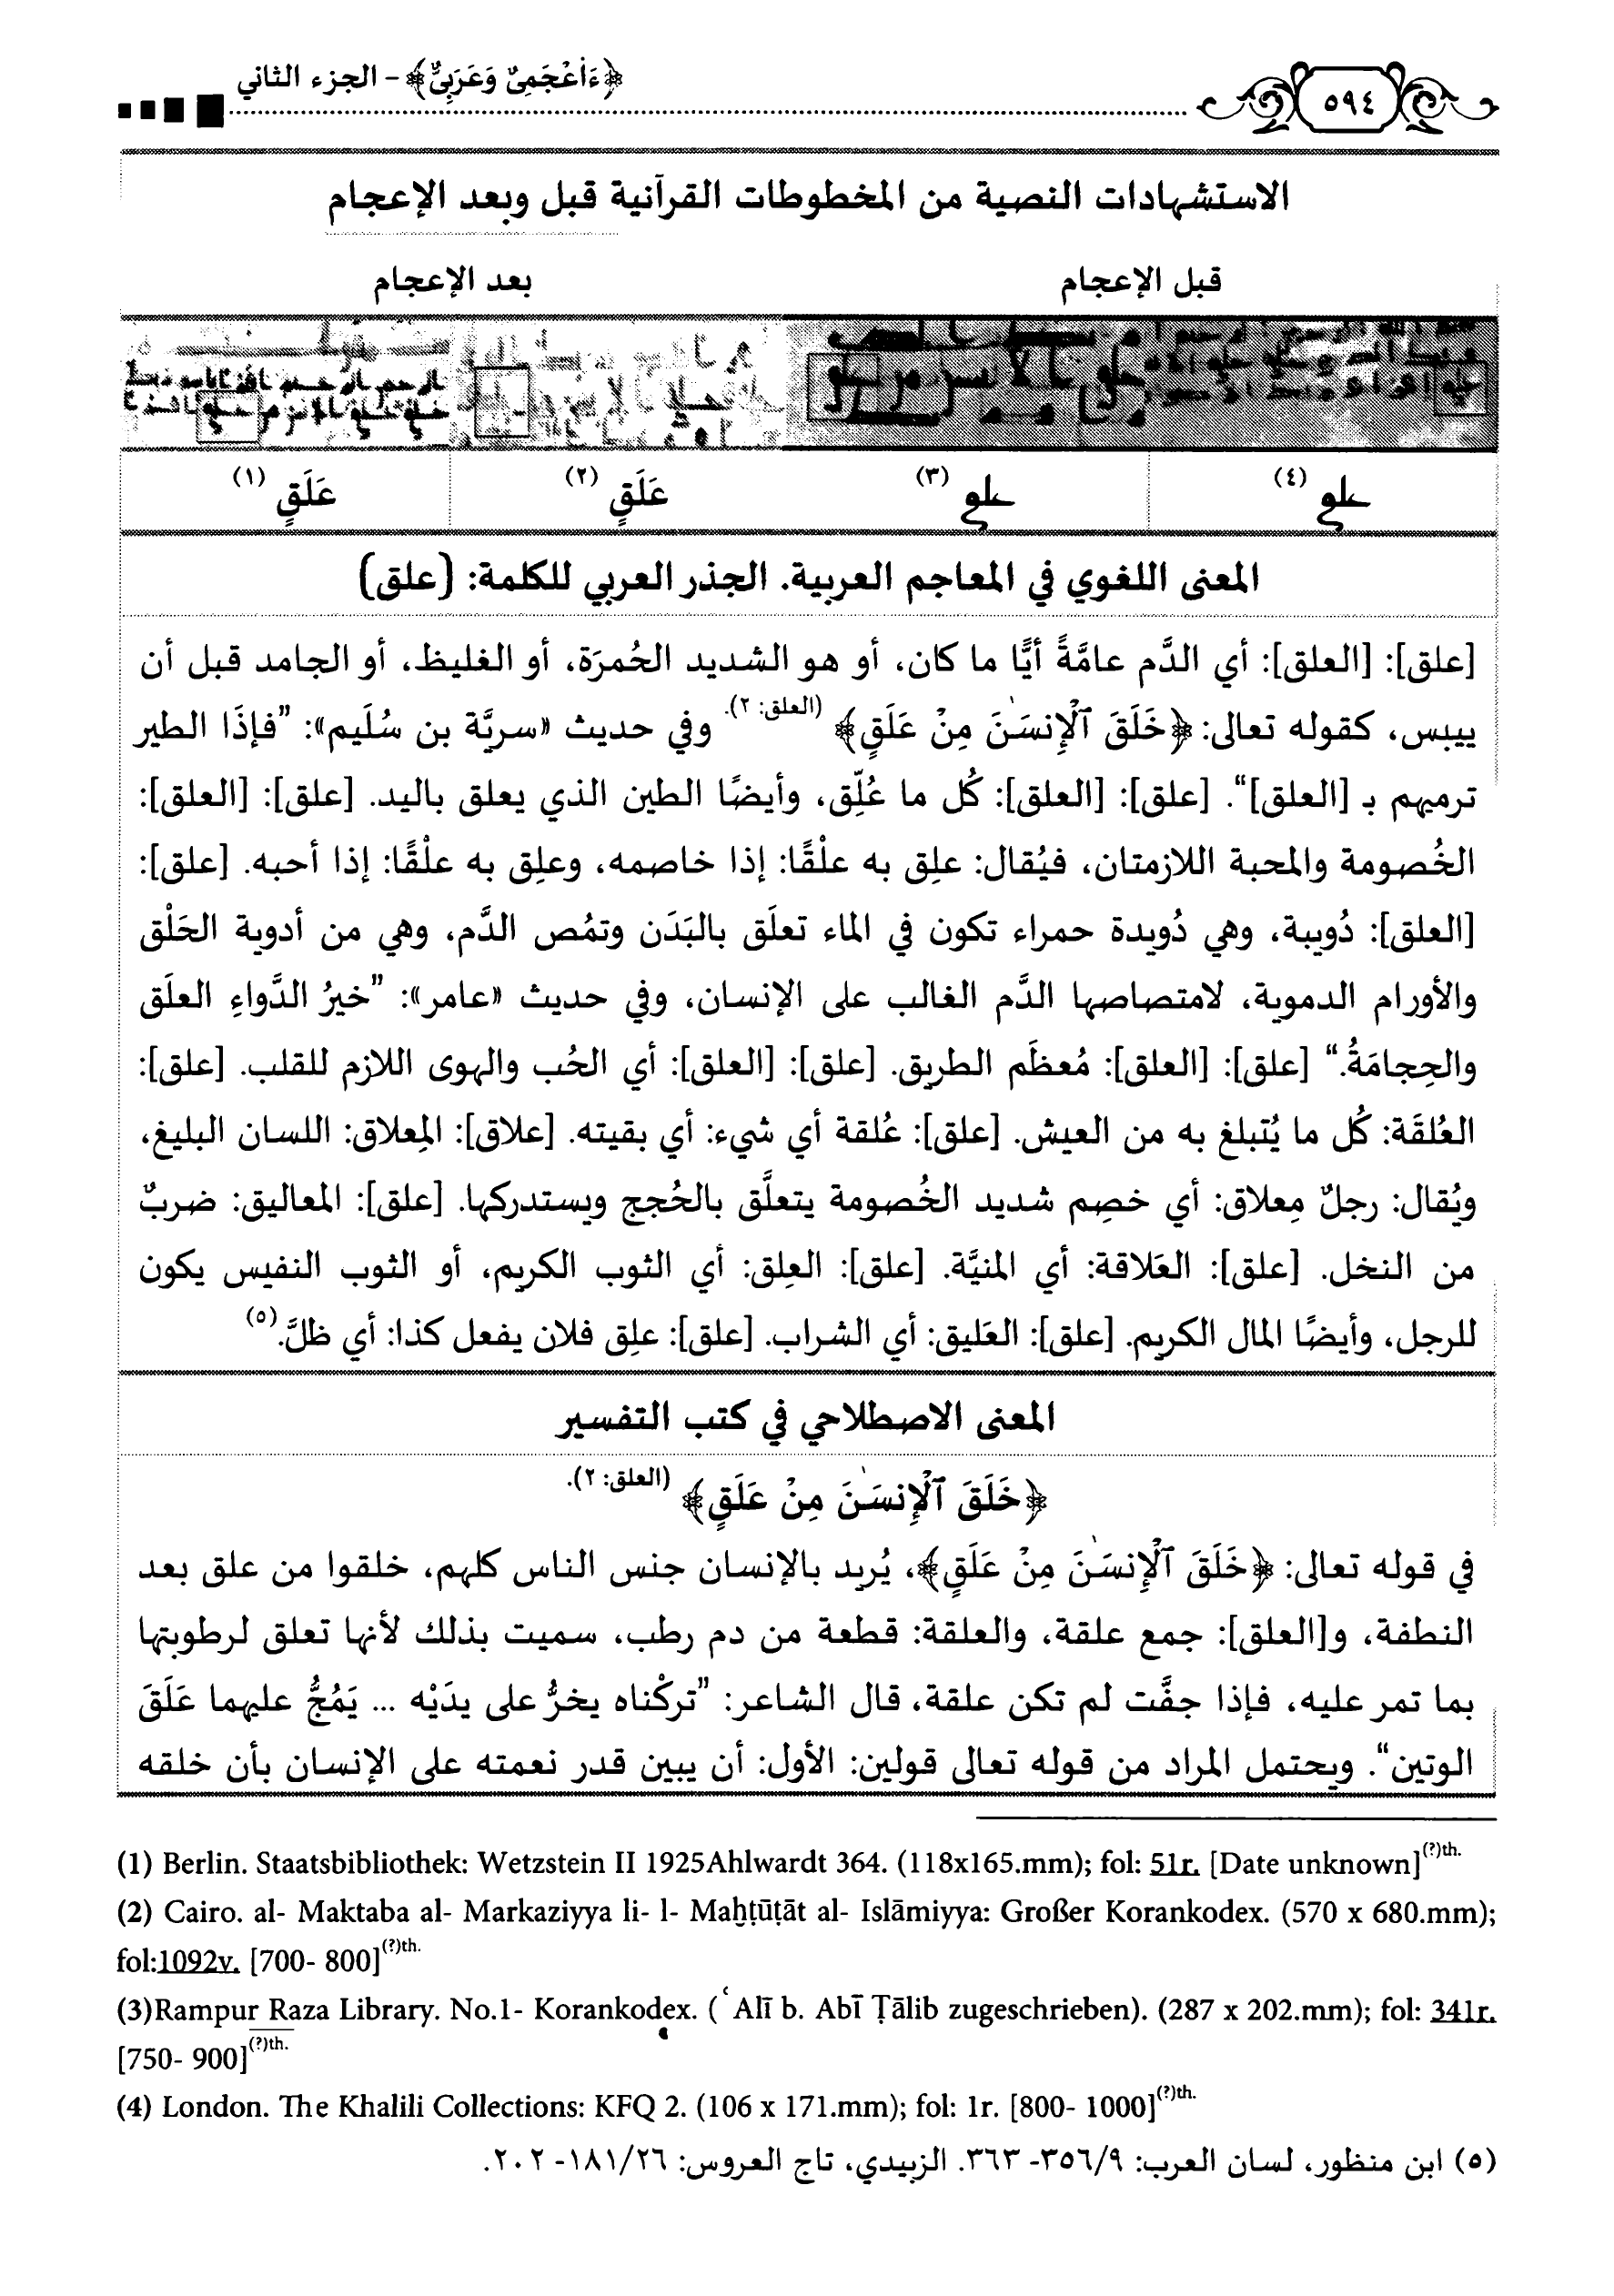 ﴿ءَا۬عْجَمِىٌّ وَعَرَبِىٌّ﴾ - الجزء الثاني
٥٩٤
الاستشهادات النصية من المخطوطات القرآنية قبل وبعد الإعجام
قبل الإعجام
بعد الإعجام
(٤) (٣) عَلَقٍ (٢) عَلَقٍ (١)
المعنى اللغوي في المعاجم العربية. الجذر العربي للكلمة: (علق)
[علق]: [العلق]: أي الدَّم عامَّةً أيًّا ما كان، أو هو الشديد الحُمرَة، أو الغليظ، أو الجامد قبل أن
ييبس، كقوله تعالى: ﴿خَلَقَ ٱلْإِنسَٰنَ مِنْ عَلَقٍ﴾ (العلق: ٢). وفي حديث «سريَّة بن سُلَيم»: ”فإذَا الطير
ترميهم بـ [العلق]“. [علق]: [العلق]: كُل ما عُلِّق، وأيضًا الطين الذي يعلق باليد. [علق]: [العلق]:
الخُصومة والمحبة اللازمتان، فيُقال: علِق به علْقًا: إذا خاصمه، وعلِق به علْقًا: إذا أحبه. [علق]:
[العلق]: دُويبة، وهي دُويدة حمراء تكون في الماء تعلَق بالبَدَن وتمُص الدَّم، وهي من أدوية الحَلْق
والأورام الدموية، لامتصاصها الدَّم الغالب على الإنسان، وفي حديث «عامر»: ”خيرُ الدَّواءِ العلَق
والحِجامَةُ.“ [علق]: [العلق]: مُعظَم الطريق. [علق]: [العلق]: أي الحُب والهوى اللازم للقلب. [علق]:
العُلقَة: كُل ما يُتبلغ به من العيش. [علق]: عُلقة أي شيء: أي بقيته. [علاق]: المِعلاق: اللسان البليغ،
ويُقال: رجلٌ مِعلاق: أي خصِم شديد الخُصومة يتعلَّق بالحُجج ويستدركها. [علق]: المعاليق: ضربٌ
من النخل. [علق]: العَلاقة: أي المنيَّة. [علق]: العِلق: أي الثوب الكريم، أو الثوب النفيس يكون
للرجل، وأيضًا المال الكريم. [علق]: العَليق: أي الشراب. [علق]: علِق فلان يفعل كذا: أي ظلَّ.(٥)
المعنى الاصطلاحي في كتب التفسير
﴿خَلَقَ ٱلْإِنسَٰنَ مِنْ عَلَقٍ﴾ (العلق: ٢).
في قوله تعالى: ﴿خَلَقَ ٱلْإِنسَٰنَ مِنْ عَلَقٍ﴾، يُريد بالإنسان جنس الناس كلهم، خلقوا من علق بعد
النطفة، و[العلق]: جمع علقة، والعلقة: قطعة من دم رطب، سميت بذلك لأنها تعلق لرطوبتها
بما تمر عليه، فإذا جفَّت لم تكن علقة، قال الشاعر: ”تركْناه يخرُّ على يدَيْه ... يَمُجُّ عليهما عَلَقَ
الوتين“. ويحتمل المراد من قوله تعالى قولين: الأول: أن يبين قدر نعمته على الإنسان بأن خلقه
(1) Berlin. Staatsbibliothek: Wetzstein II 1925Ahlwardt 364. (118x165.mm); fol: 51r. [Date unknown](?)th.
(2) Cairo. al- Maktaba al- Markaziyya li- l- Maḫṭūṭāt al- Islāmiyya: Großer Korankodex. (570 x 680.mm);
fol:1092v. [700- 800](?)th.
(3)Rampur Raza Library. No.1- Korankodex. (ʿAlī b. Abī Ṭālib zugeschrieben). (287 x 202.mm); fol: 341r.
[750- 900](?)th.
(4) London. The Khalili Collections: KFQ 2. (106 x 171.mm); fol: 1r. [800- 1000](?)th.
(٥) ابن منظور، لسان العرب: ٣٥٦/٩- ٣٦٣. الزبيدي، تاج العروس: ١٨١/٢٦- ٢٠٢.